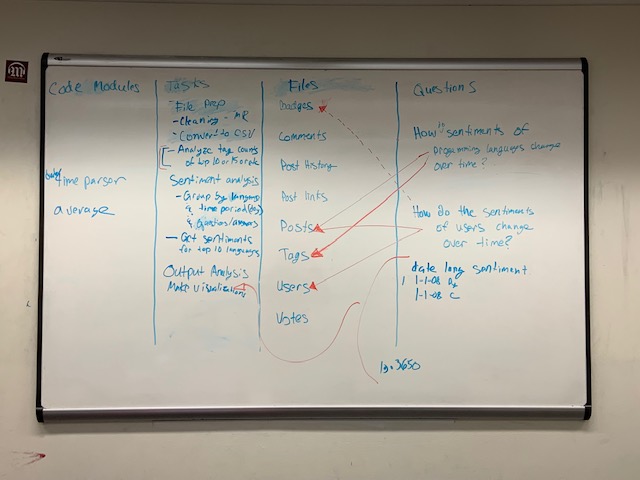 Code Modules
time parser
average
Tasks
- File Prep
- Cleaning - MR
- Convert to CSV
- Analyze tag counts
of top 10 or 15 or
Sentiment analysis
- Group by language
& time period (day)
& question/answers
- Get sentiments
for top 10 languages
Output Analysis
Make visualizations
Files
Badges
Comments
Post History
Post links
Posts
Tags
Users
Votes
Questions
How sentiments of
programming languages change
over time?
How do the sentiments
of users change
over time?
date lang sentiment
1 1-1-08
1-1-08 C
3650